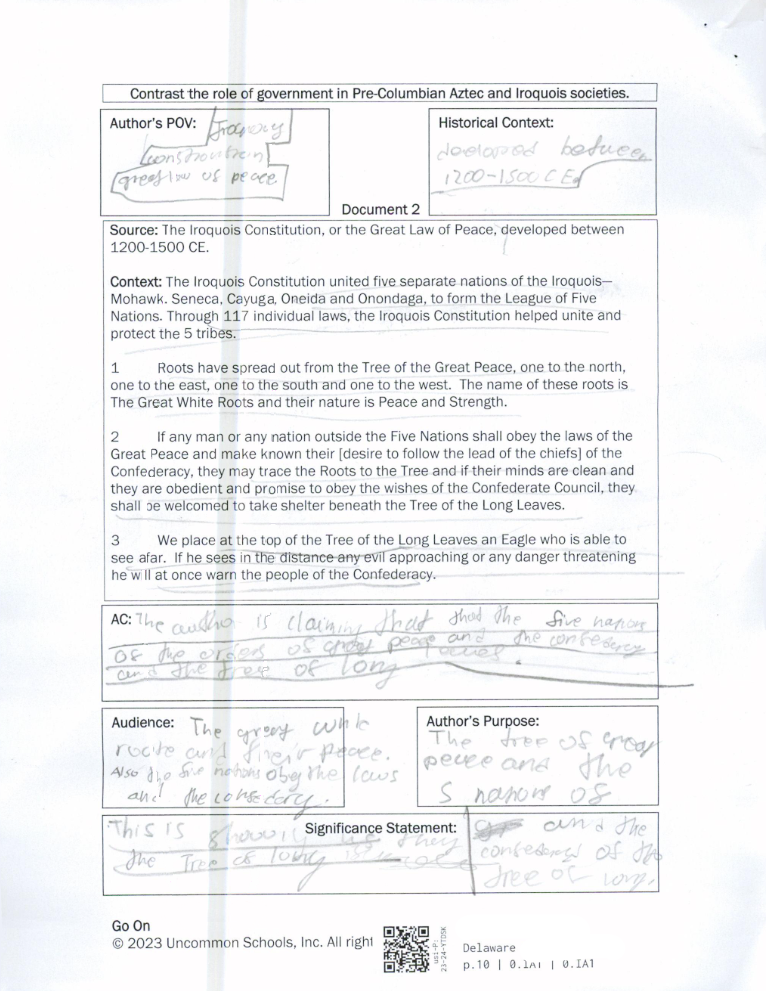 Contrast the role of government in Pre-Columbian Aztec and Iroquois societies.
Author's POV:
great law of peace
Historical Context:
between
1200-1500 CE
Document 2
Source: The Iroquois Constitution, or the Great Law of Peace, developed between
1200-1500 CE.
Context: The Iroquois Constitution united five separate nations of the Iroquois—
Mohawk. Seneca, Cayuga, Oneida and Onondaga, to form the League of Five
Nations. Through 117 individual laws, the Iroquois Constitution helped unite and
protect the 5 tribes.
1 Roots have spread out from the Tree of the Great Peace, one to the north,
one to the east, one to the south and one to the west. The name of these roots is
The Great White Roots and their nature is Peace and Strength.
2 If any man or any nation outside the Five Nations shall obey the laws of the
Great Peace and make known their [desire to follow the lead of the chiefs] of the
Confederacy, they may trace the Roots to the Tree and if their minds are clean and
they are obedient and promise to obey the wishes of the Confederate Council, they
shall be welcomed to take shelter beneath the Tree of the Long Leaves.
3 We place at the top of the Tree of the Long Leaves an Eagle who is able to
see afar. If he sees in the distance any evil approaching or any danger threatening
he will at once warn the people of the Confederacy.
AC: The is claiming that that the five nations
of the orders of great peace and the
and the tree of long
Audience: The great
and their peace.
Also the five nations obey the laws
and the
Author's Purpose:
The tree of
peace and the
5 nations of
This is Significance Statement: and the
the Tree of long of the
tree of long.
Go On
© 2023 Uncommon Schools, Inc. All right
us1-P:
23-24-YTD5K
Delaware
p.10 | 0.IA1 | 0.IA1